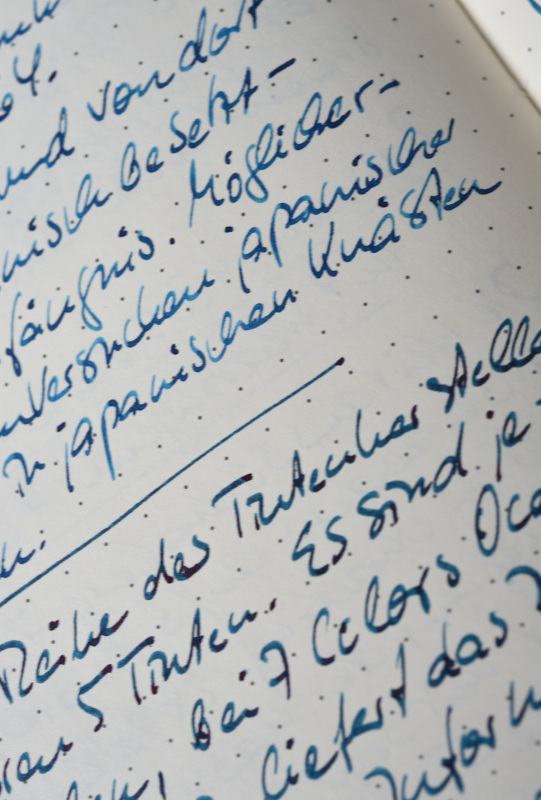 04.
und von dort
nisch besetzt-
fängnis. Möglicher-
nversuchen japanischer
in japanischen Knästen
n.
Reihe des Tintenherstelle
5 Tinten. Es sind je
Bei 7 Colors Oce
liefert das
Inform